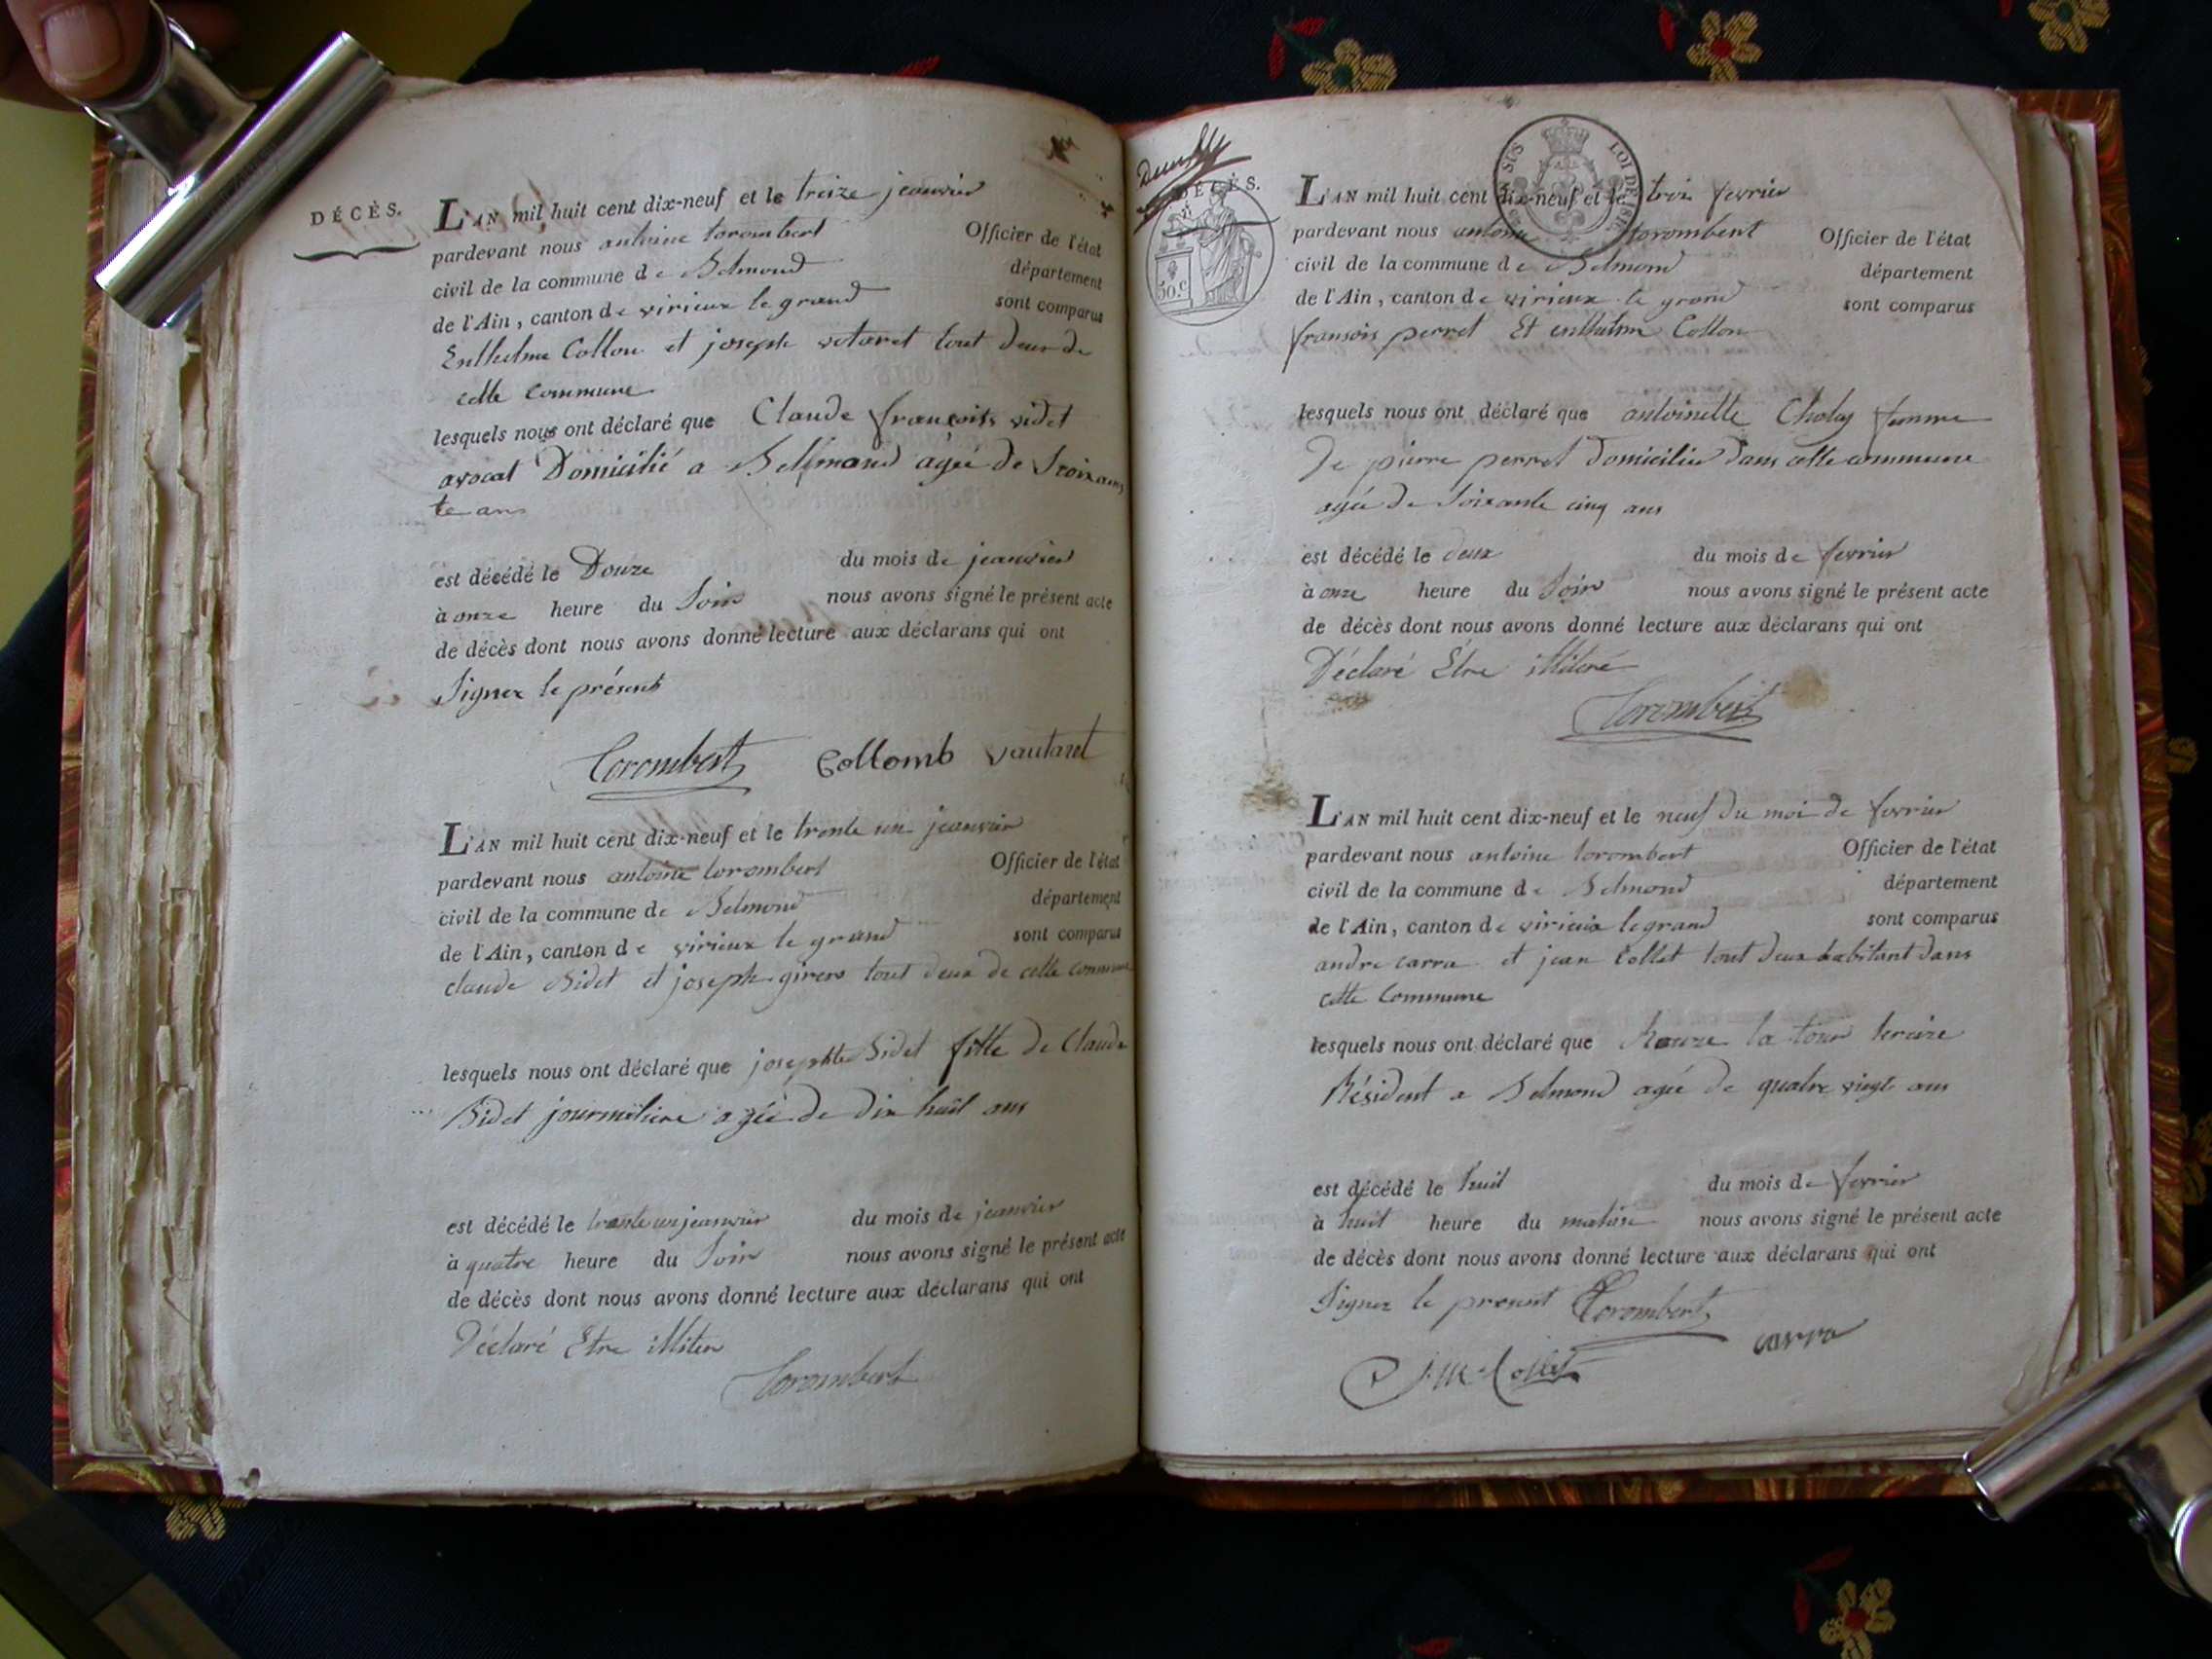 DÉCÈS.
L'AN mil huit cent dix-neuf et le treize jeanvier
pardevant nous antoine torombert Officier de l'état
civil de la commune de Belmond département
de l'Ain, canton de virieux le grand sont comparus
Enthelme Collon et joseph votaret tout deux de
cette commune
lesquels nous ont déclaré que Claude françois videt
avocat Domicilié a Belmond agée de Soixan
te ans
est décédé le Douze du mois de jeanvier
à onze heure du Soir nous avons signé le présent acte
de décès dont nous avons donné lecture aux déclarans qui ont
Signez le présent
Torombert Collomb Vautaret
L'AN mil huit cent dix-neuf et le trente un jeanvier
pardevant nous antoine torombert Officier de l'état
civil de la commune de Belmond département
de l'Ain, canton de virieux le grand sont comparus
claude Bidet et joseph girers tout deux de cette commune
lesquels nous ont déclaré que josephte Bidet fille de Claude
Bidet journaliere agée de Dix huit ans
est décédé le trente un jeanvier du mois de jeanvier
à quatre heure du Soir nous avons signé le présent acte
de décès dont nous avons donné lecture aux déclarans qui ont
Déclaré Etre illiter
Torombert
DÉCÈS.
50.c
SUS LOI DE 1816
L'AN mil huit cent dix-neuf et le trois fevrier
pardevant nous antoine torombert Officier de l'état
civil de la commune de Belmond département
de l'Ain, canton de virieux le grand sont comparus
fransois perret Et enthelme Collon
lesquels nous ont déclaré que antoinette Cholay femme
De pierre perret Domiciliée Dans cette commune
agée de Soixante cinq ans
est décédé le deux du mois de fevrier
à onze heure du Soir nous avons signé le présent acte
de décès dont nous avons donné lecture aux déclarans qui ont
Déclaré Etre illiteré
Torombert
L'AN mil huit cent dix-neuf et le neuf du moi de fevrier
pardevant nous antoine torombert Officier de l'état
civil de la commune de Belmond département
de l'Ain, canton de virieux le grand sont comparus
andre carra et jean Collet tout deux habitant dans
cette Commune
lesquels nous ont déclaré que la tour
Résident a Belmond agée de quatre vingt ans
est décédé le huit du mois de fevrier
à huit heure du matin nous avons signé le présent acte
de décès dont nous avons donné lecture aux déclarans qui ont
Signez le present Torombert
J.M. Collet carra